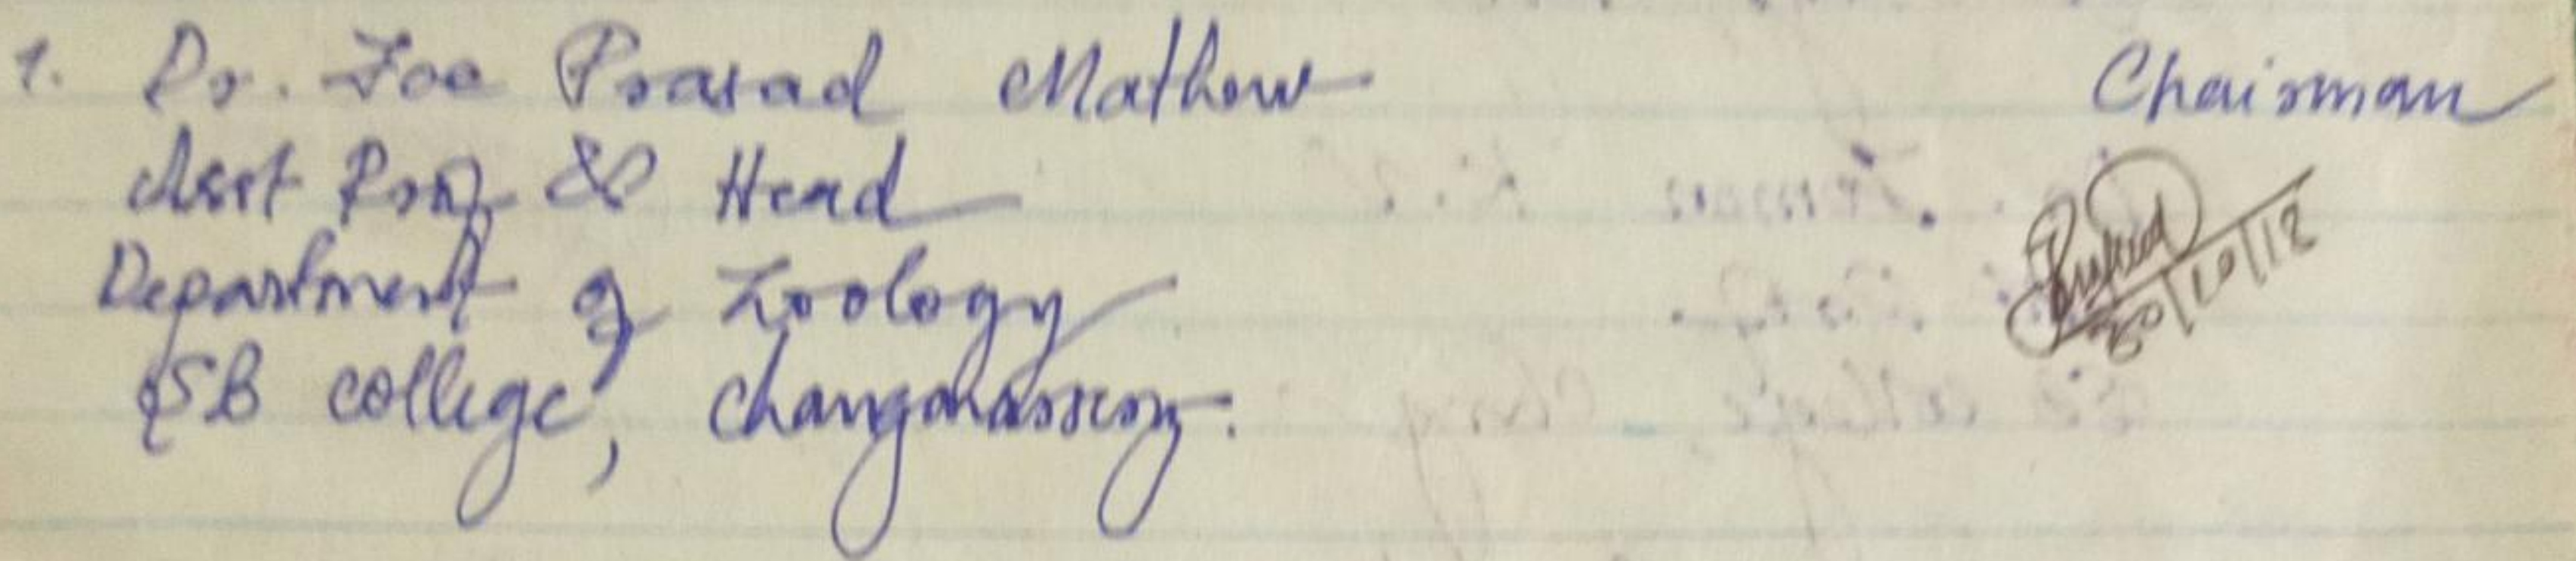 1. Dr. Joe Prasad Mathew Chairman
Asst Prof & Head
Department of Zoology
SB college, Changanassery.
30/10/12